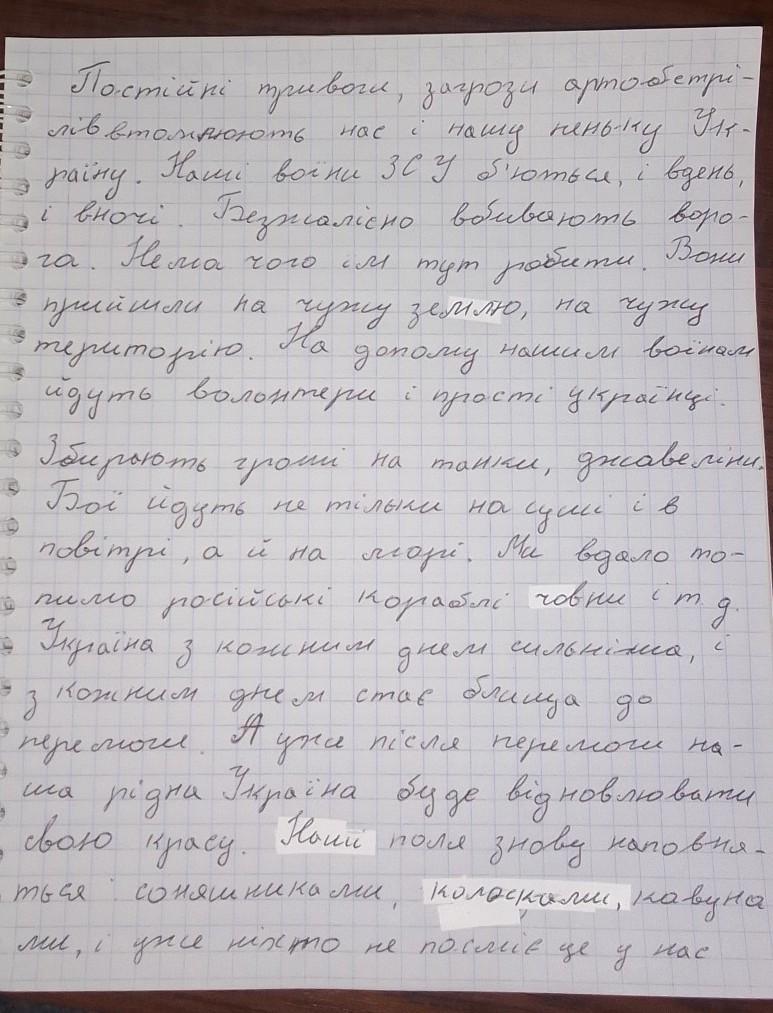 Постійні тривоги, загрози артобстрі-
лів втомлюють нас і нашу неньку Ук-
раїну. Наші воїни ЗСУ б'ються, і вдень,
і вночі. Безжалісно вбивають воро-
га. Нема чого їм тут робити. Вони
прийшли на чужу землю, на чужу
територію. На допому нашим воїнам
йдуть волонтери і прості українці.
Збирають гроші на танки, джавеліни.
Бої йдуть не тільки на суші і в
повітрі, а й на морі. Ми вдало то-
пимо російські кораблі човни і т. д.
Україна з кожним днем сильніша, і
з кожним днем стає ближча до
перемоги. А уже після перемоги на-
ша рідна Україна буде відновлювати
свою красу. Наші поля знову наповня-
ться соняшниками, колосками, кавуна
ми, і уже ніхто не посміє це у нас